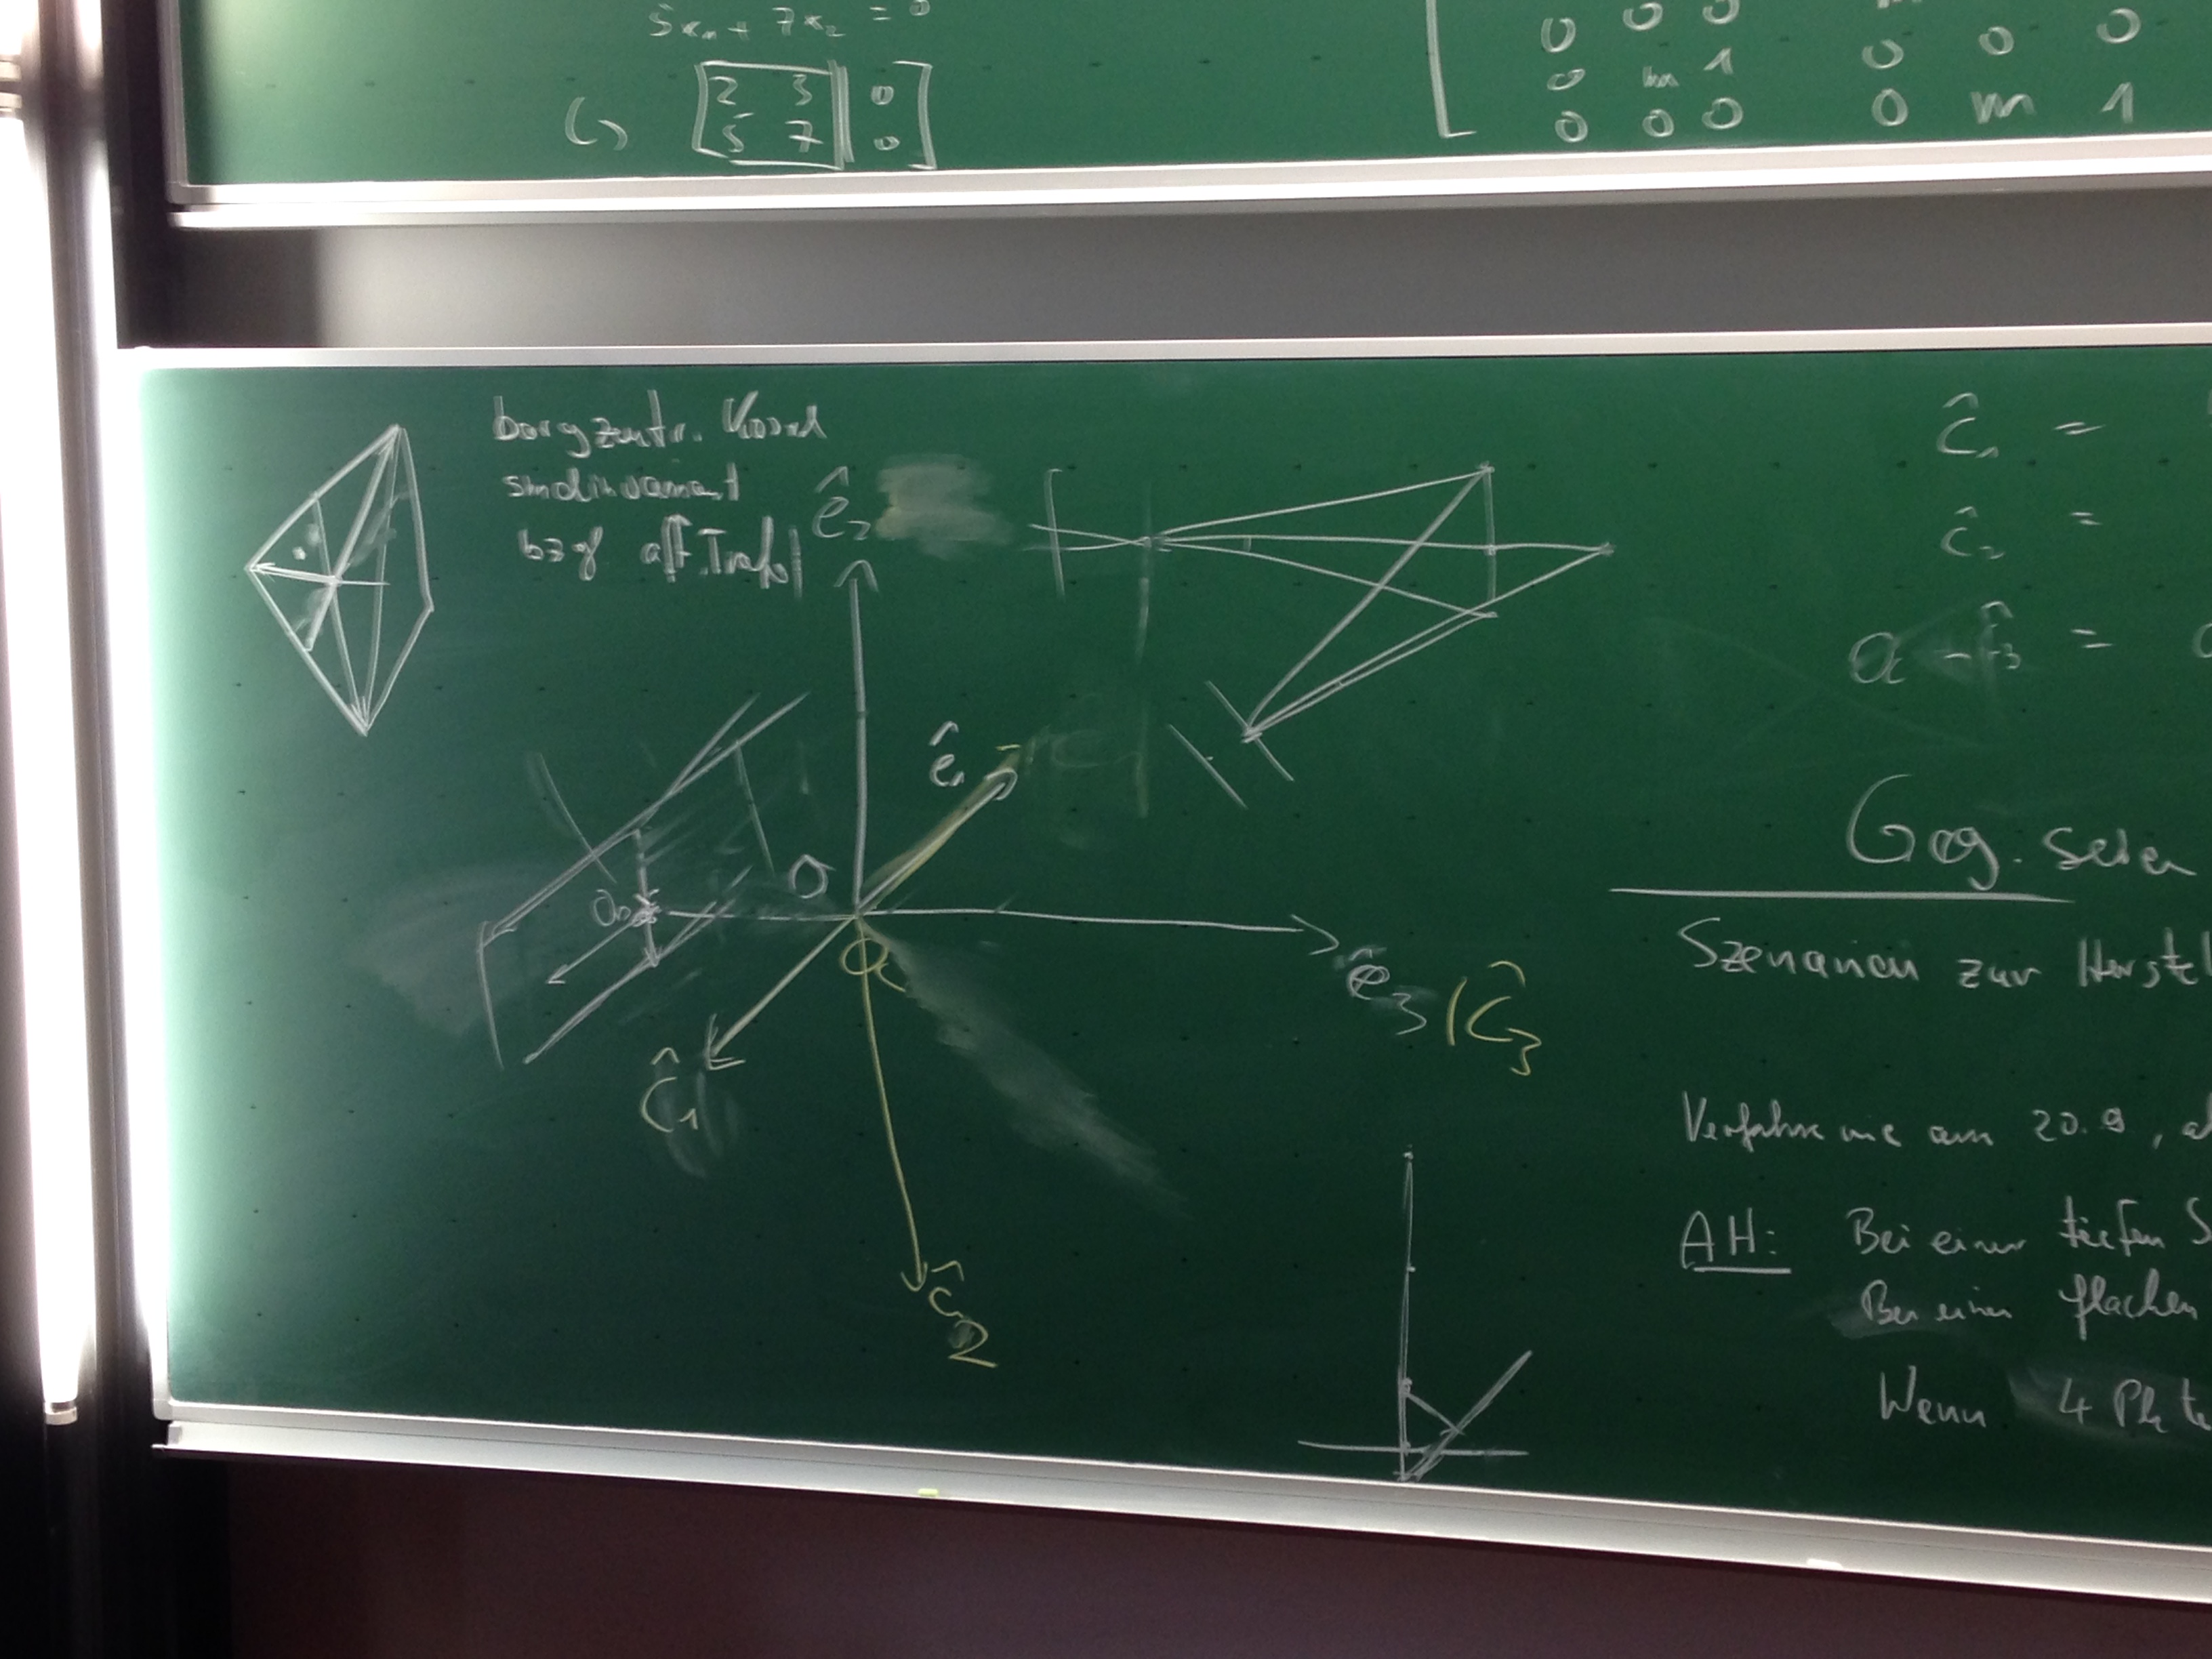 5x₁ + 7x₂ = 0
2 3 0
5 7 0
0 0 0
0 m 1 0 0 0
0 0 0 0 m 1
baryzentr. Koord
sind invariant
bzgl aff. Trafo
ê₂
ê₁
O
ê₃ / ĉ₃
ĉ₁
ĉ₂
ĉ₁ =
ĉ₂ =
=
Geg.
Szenarien zur
Verfahre wie am 20.9,
AH: Bei einer tiefen
Bei einer flachen
Wenn 4 Pkte